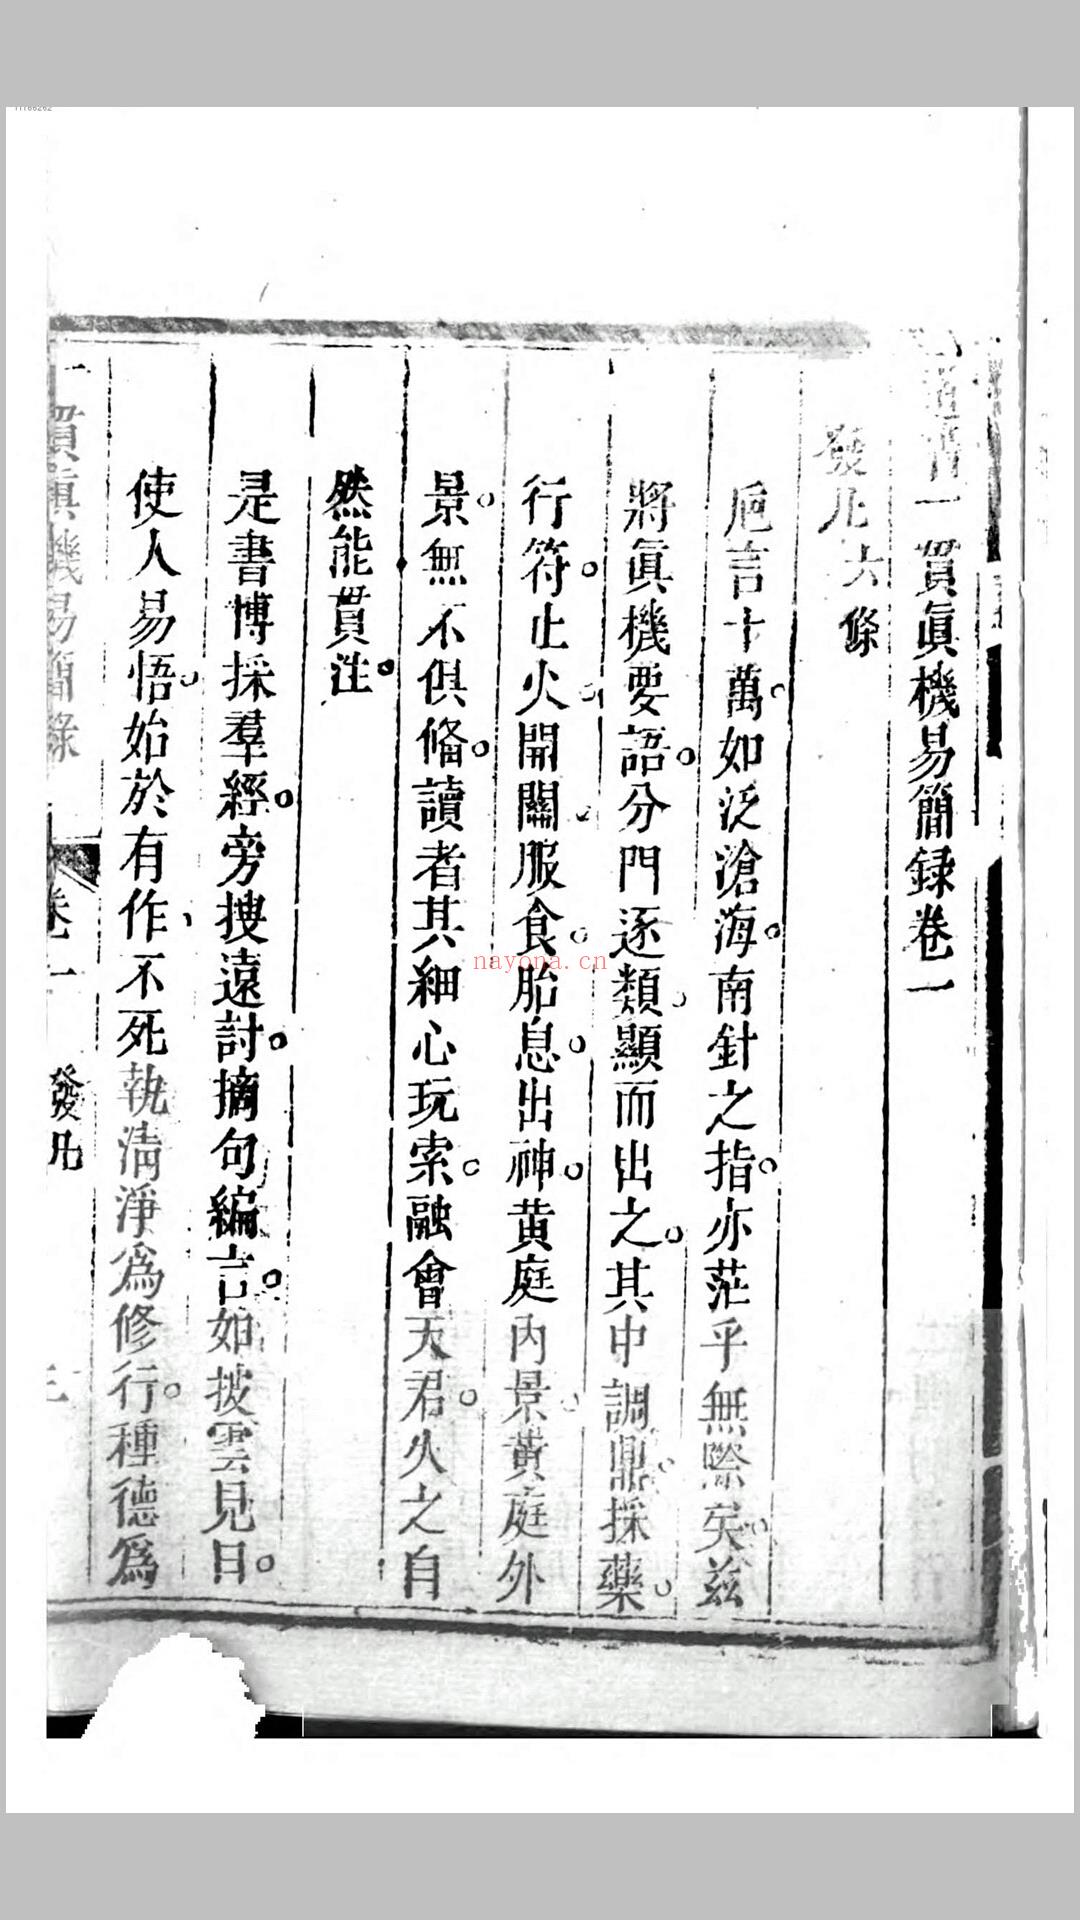 11166262
道書一貫眞機易簡録卷一
發凡六條
巵言十萬如泛滄海南針之指亦茫乎無際矣兹
將眞機要語分門逐類顯而出之其中調鼎採藥
行符止火開關服食胎息出神黄庭内景黄庭外
景無不俱俻讀者其細心玩索融會天君久之自
然能貫注
是書博採羣經旁搜遠討摘句編言如披雲見日
使人易悟始於有作不死執清淨爲修行種德爲
一貫眞機易簡錄
卷一
發凡
nayona.cn